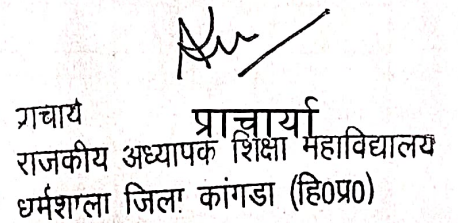 प्राचार्य प्राचार्या
राजकीय अध्यापक शिक्षा महाविद्यालय
धर्मशाला जिला कांगडा (हि0प्र0)